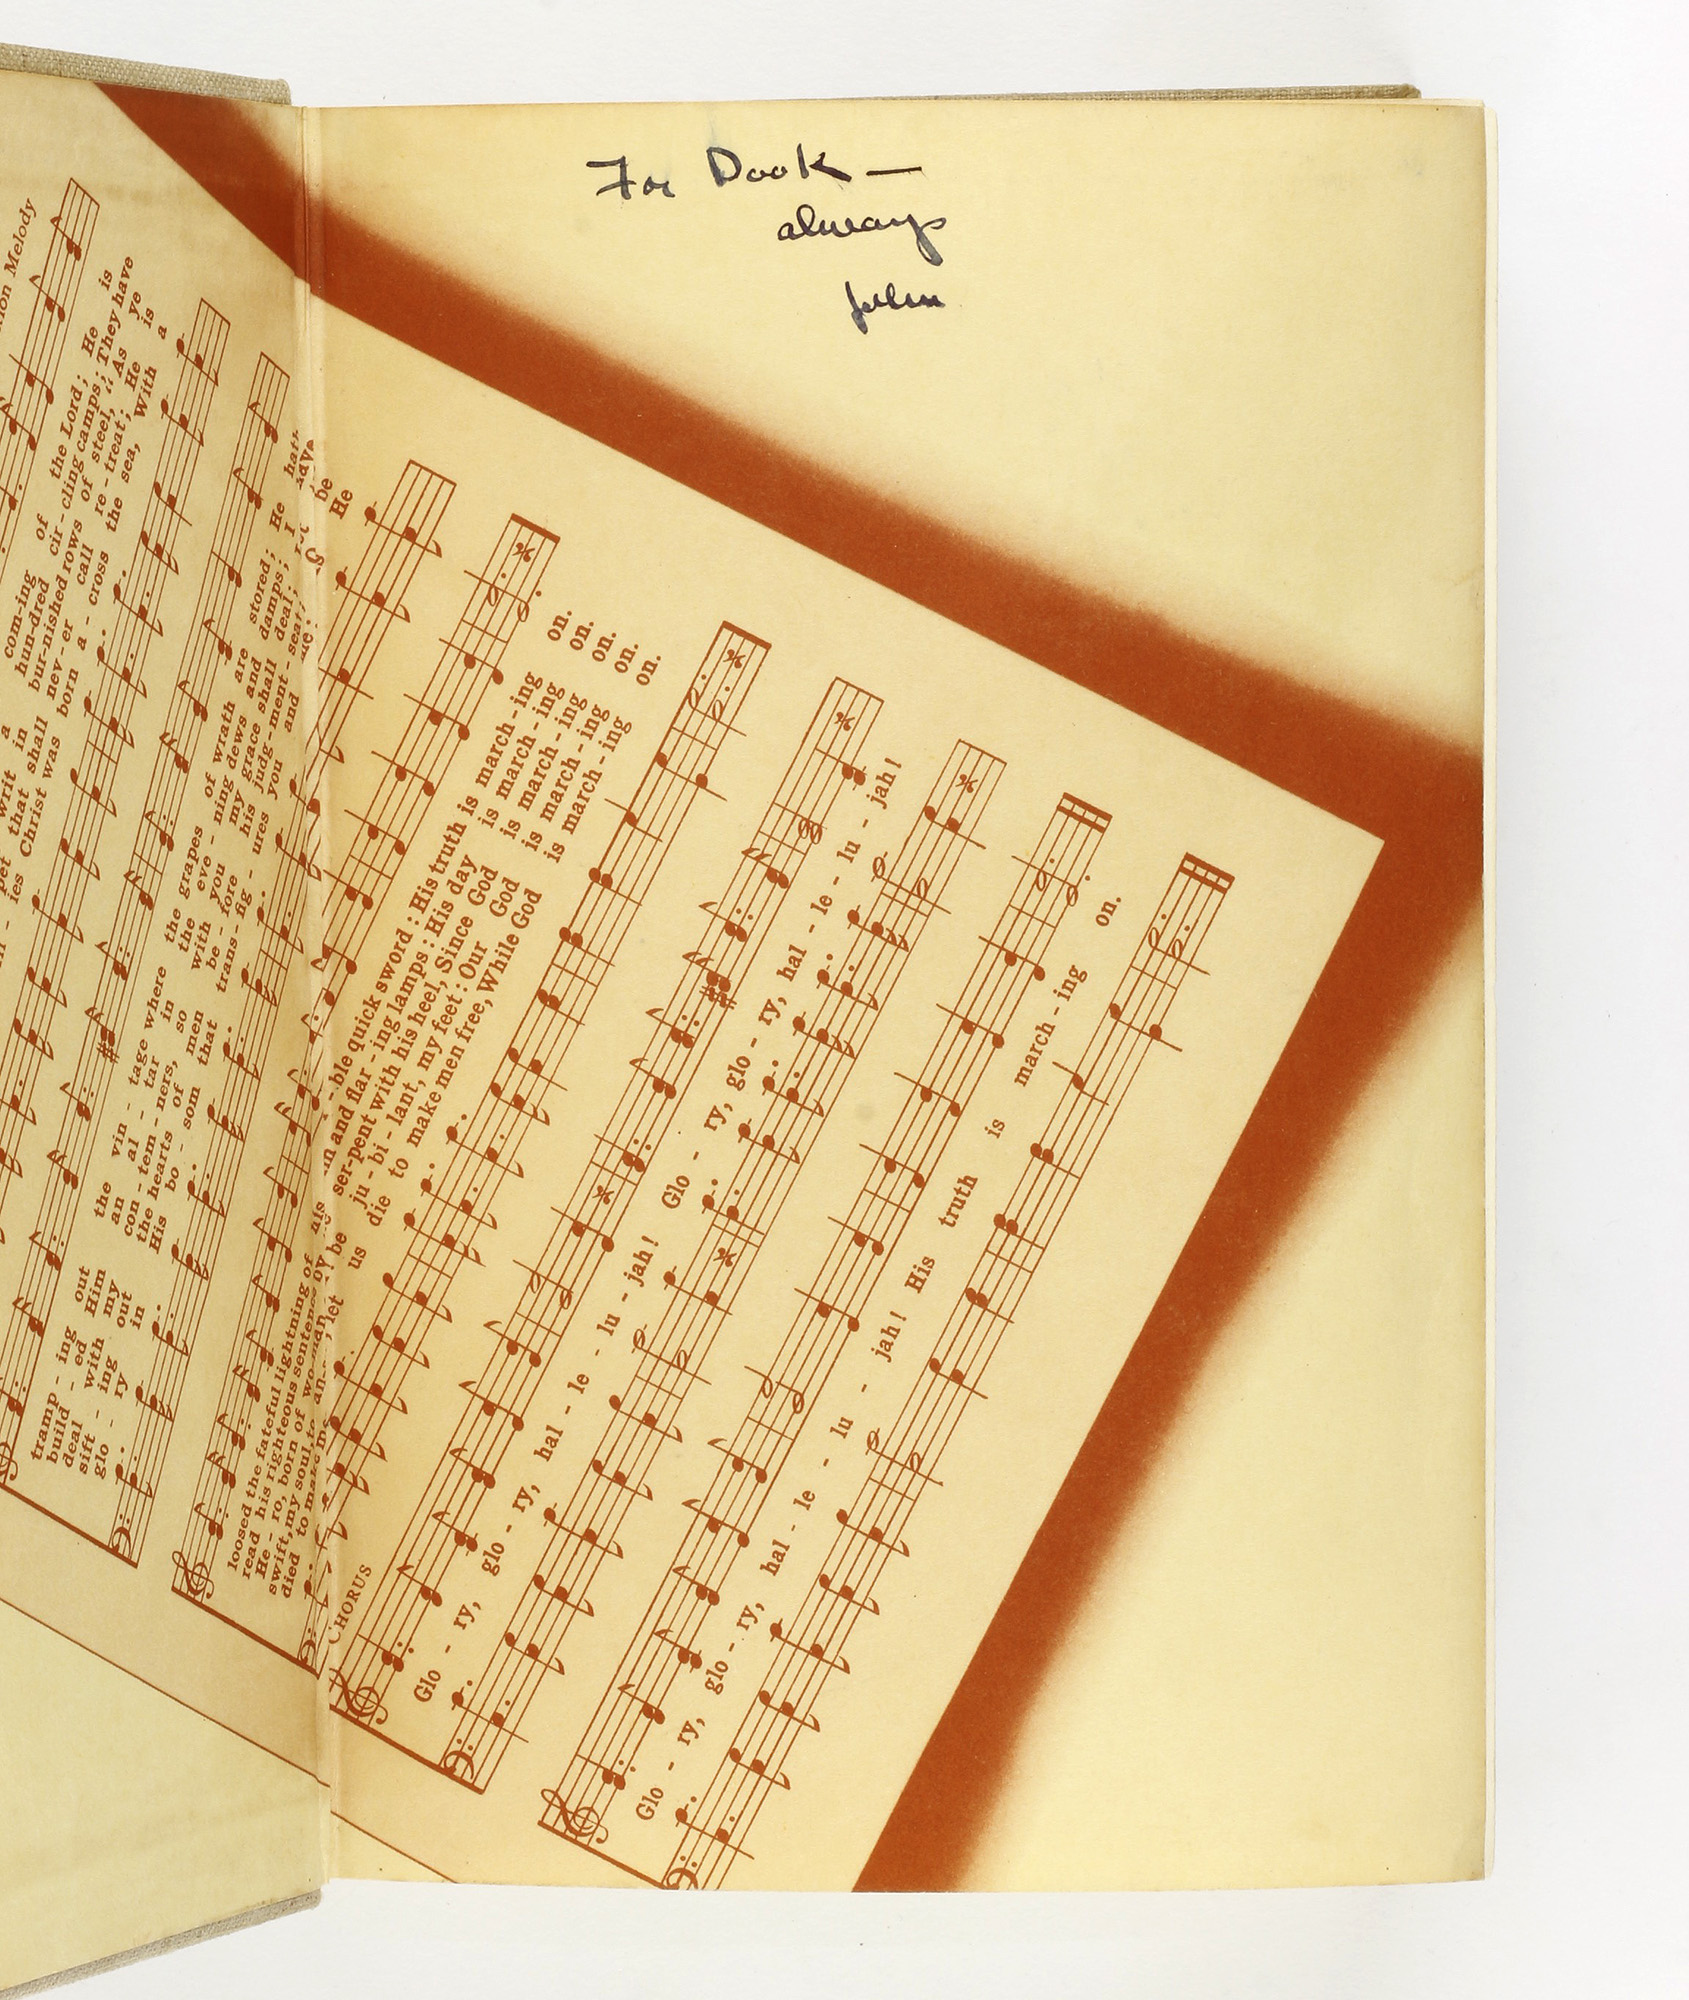 For Dook —
always
John
com-ing of the Lord; He is
hun-dred cir - cling camps; They have
bur-nished rows of steel, "As ye
nev-er call re - treat; He is
born a - cross the sea, With a
tramp - ing out the vin - tage where the grapes of wrath are stored; He hath
build - ed Him an al - tar in the eve - ning dews and damps; I
deal - with my con - tem - ners, so with you my grace shall deal;
sift - ing out the hearts of men be - fore his judg - ment - seat;
glo - ry in His bo - som that trans - fig - ures you and
loosed the fateful lightning of his -ble quick sword: His truth is march - ing on.
read his righteous sentence by and flar - ing lamps: His day is march - ing on.
He - ro, born of wo-man, ser-pent with his heel, Since God is march - ing on.
swift, my soul, to be ju - bi - lant, my feet: Our God is march - ing on.
died to make let us die to make men free, While God is march - ing on.
CHORUS
Glo - ry, glo - ry, hal - le - lu - jah! Glo - ry, glo - ry, hal - le - lu - jah!
Glo - ry, glo - ry, hal - le - lu - jah! His truth is march - ing on.